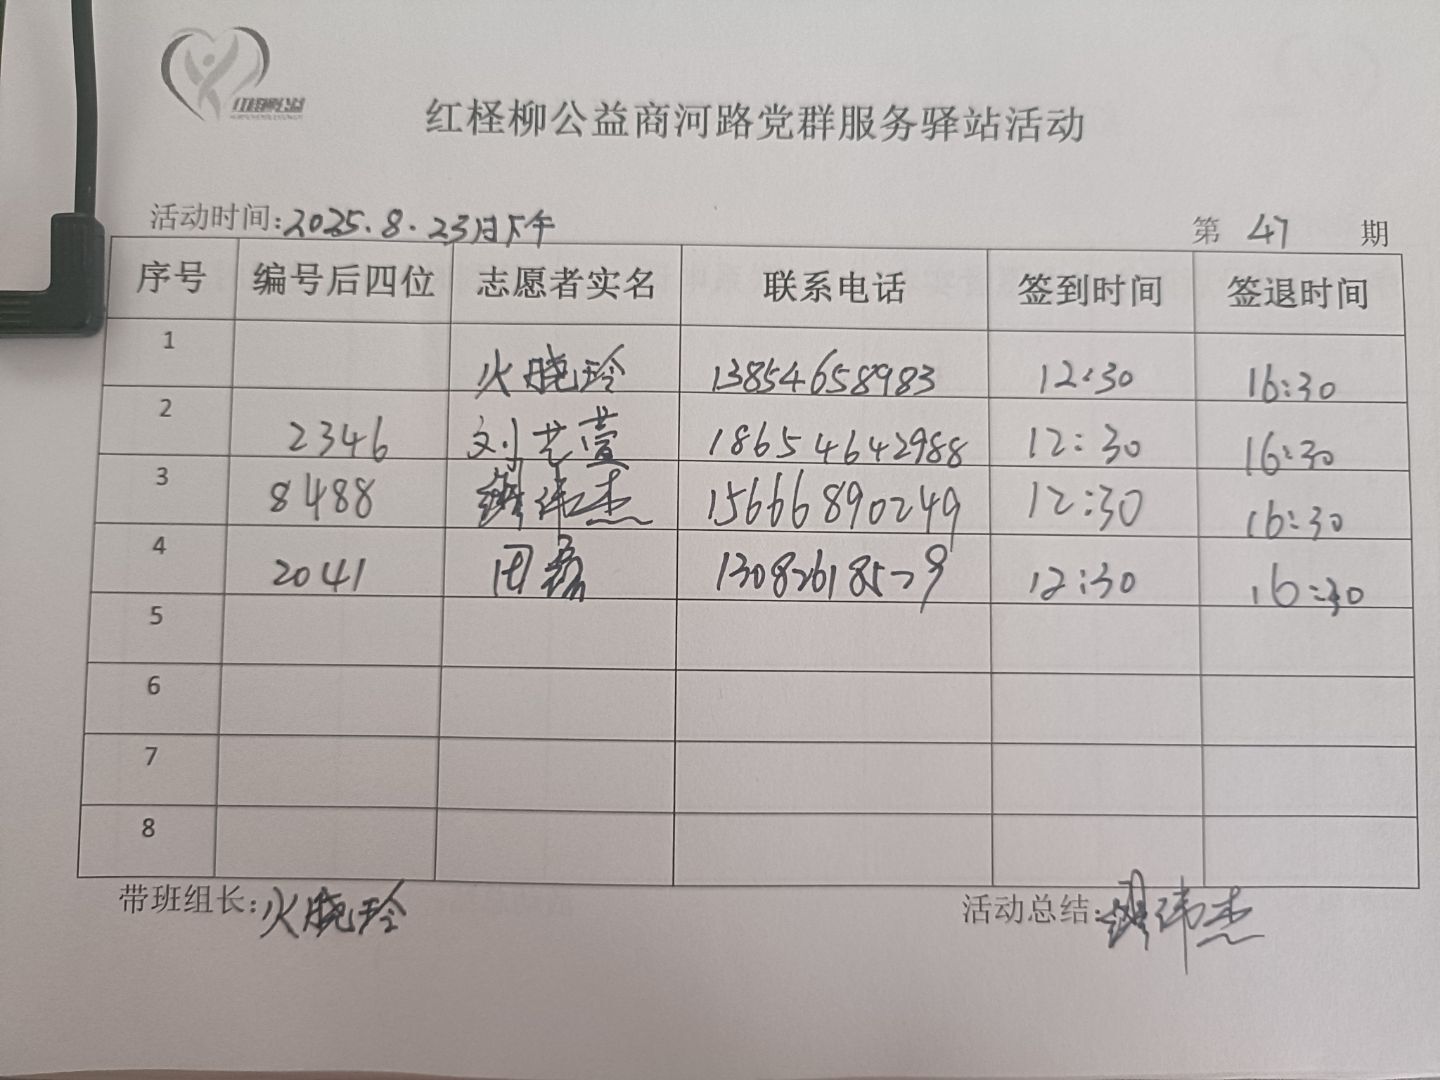 红柽柳公益商河路党群服务驿站活动
活动时间:2025.8.23日下午 第 47 期
序号 编号后四位 志愿者实名 联系电话 签到时间 签退时间
1 火晓玲 13854658983 12:30 16:30
2 2346 刘艺萱 18654642988 12:30 16:30
3 8488 伟杰 15666890249 12:30 16:30
4 2041 田磊 12:30 16:30
5
6
7
8
带班组长:火晓玲 活动总结: 伟杰